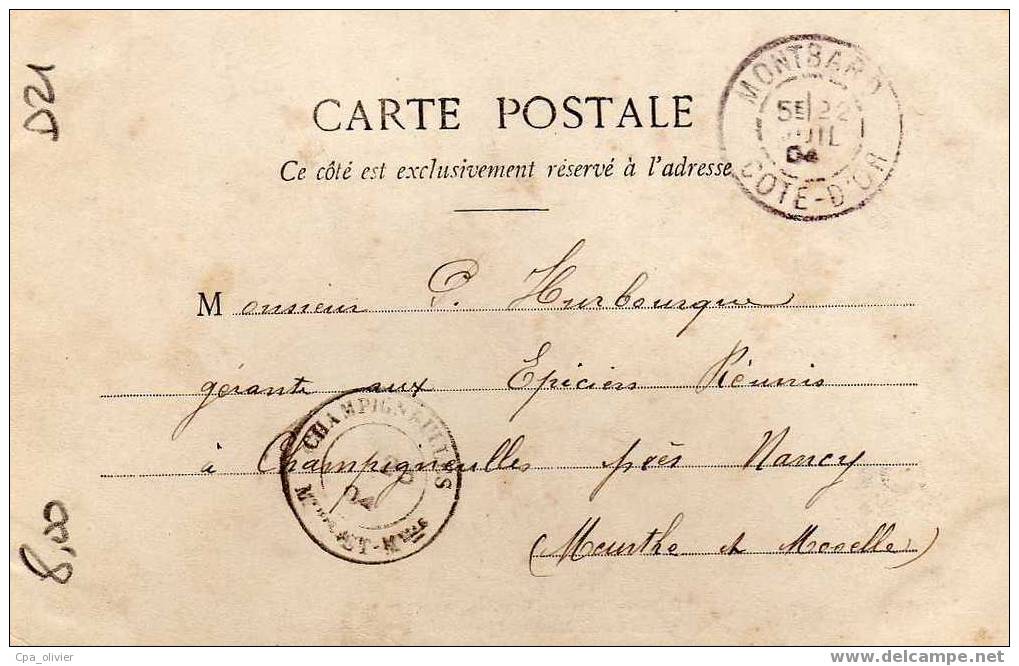 D21
CARTE POSTALE
Ce côté est exclusivement réservé à l'adresse
MONTBARD
5E 22
JUIL
04
COTE-D'OR
Monsieur P. Hurbourque
gérante aux Epiciers Réunis
à Champigneulles près Nancy
(Meurthe et Moselle)
CHAMPIGNEULLES
04
ET-M
8,00
Cpa_olivier
delcampe.net